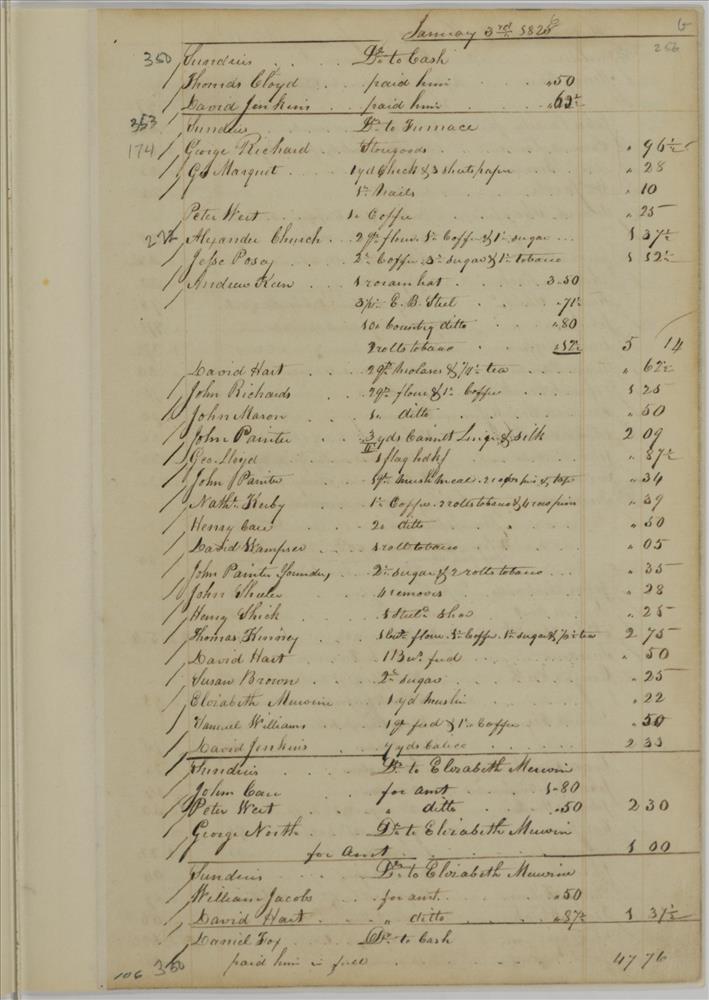 January 3rd 1826 6
256
350 Sundries . . . . Dr. to Cash
Thomas Cloyd . . paid him . . . „50
David Jenkins . . paid him . . . „62½
353 Sundries . . . Dr. to Furnace
174 George Richard . . Storegoods . . . . „ 96½
G Marquet . . . 1 yd Check & 3 sheets paper . . . „ 28
1 lb nails . . . „ 10
Peter West . . . 1 lb Coffee . . . „ 25
Alexander Church . . 2 qr. flour 1 lb Coffee & 1 lb sugar . . . 1 37½
Jesse Posey . . . 2 lb Coffee 3 lb sugar & 1 lb tobacco 1 12½
Andrew Keen . . . 1 roram hat . . . . 3.50
E. B. Steel . . . „71
10 Country ditto . . . „80
2 rolls tobacco . . . „12½ 5 14
David Hart . . . 2 qts molases & ¼ lb tea . . . . „ 62½
John Richards . . . 2 qr. flour & 1 lb Coffee . . . 1 25
John Mason . . . ditto . . . . „ 50
John Painter . . . 3 yds & silk 2 09
Geo. Lloyd . . . 1 flag hdkf . . . „ 87½
John Painter . . . „ 34
Nathl. Kerby . . . 1 lb Coffee 2 rolls tobacco & „ 39
Henry Carr . . . 2 lb ditto . . . „ 50
David Wampser . . . 1 roll tobacco . . . . „ 05
John Painter Founder, . . 2 lb sugar & 2 rolls tobacco . . . „ 35
John Sheeler . . . 4 removes . . . . „ 28
Henry Shick . . . 1 Steeld. Shoe . . . „ 25
Thomas Kinney . . flour 1 lb Coffee 1 lb sugar & tea 2 75
David Hart . . . feed . . . . „ 50
Susan Brown . . . 2 lb sugar . . . . „ 25
Elizabeth Merwine . . . 1 yd muslin . . . „ 22
Samuel Williams . . . 1 qr feed & 1 lb Coffee . . . „ 50
David Jenkins . . . 7 yds Calico . . . . 2 33
Sundries . . . Dr. to Elizabeth Merwin
John Carr . . . for amt . . . 1.80
Peter West . . . „ ditto . . . „50 2 30
George North . . . Dr. to Elizabeth Merwin
for amt . . . . 1 00
Sundries . . . Dr. to Elizabeth Merwine
William Jacobs . . for amt. . . . „50
David Hart . . . „ ditto . . . „87½ 1 37½
Daniel Fox . . . Dr. to Cash
106 350 paid him in full . . . . 47 76